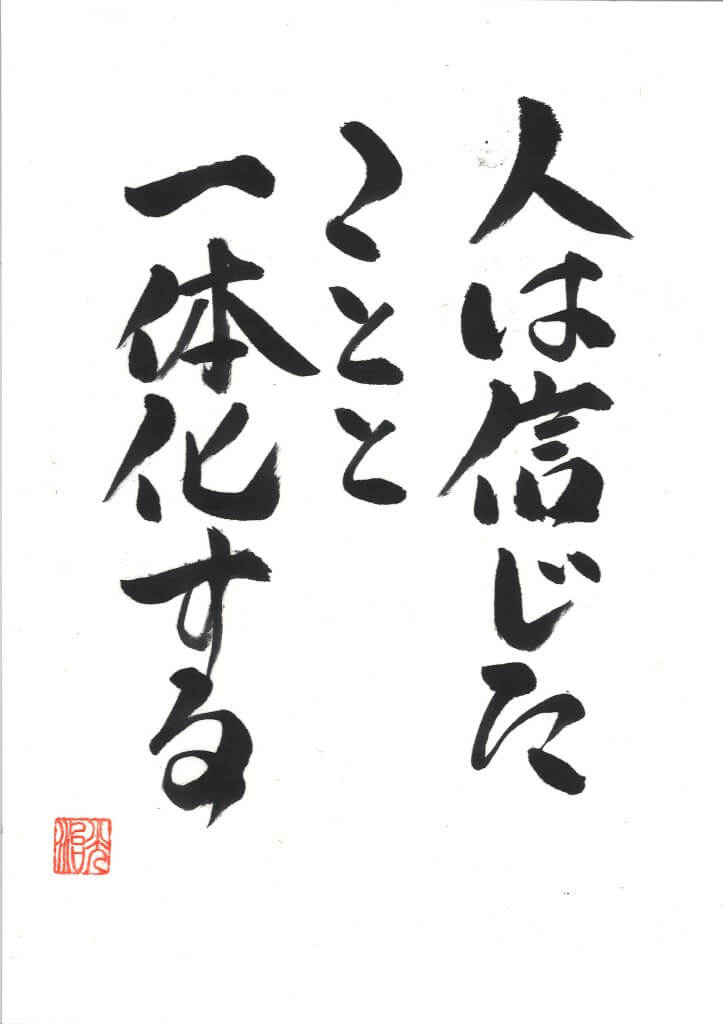 人は信じた
ことと
一体化する